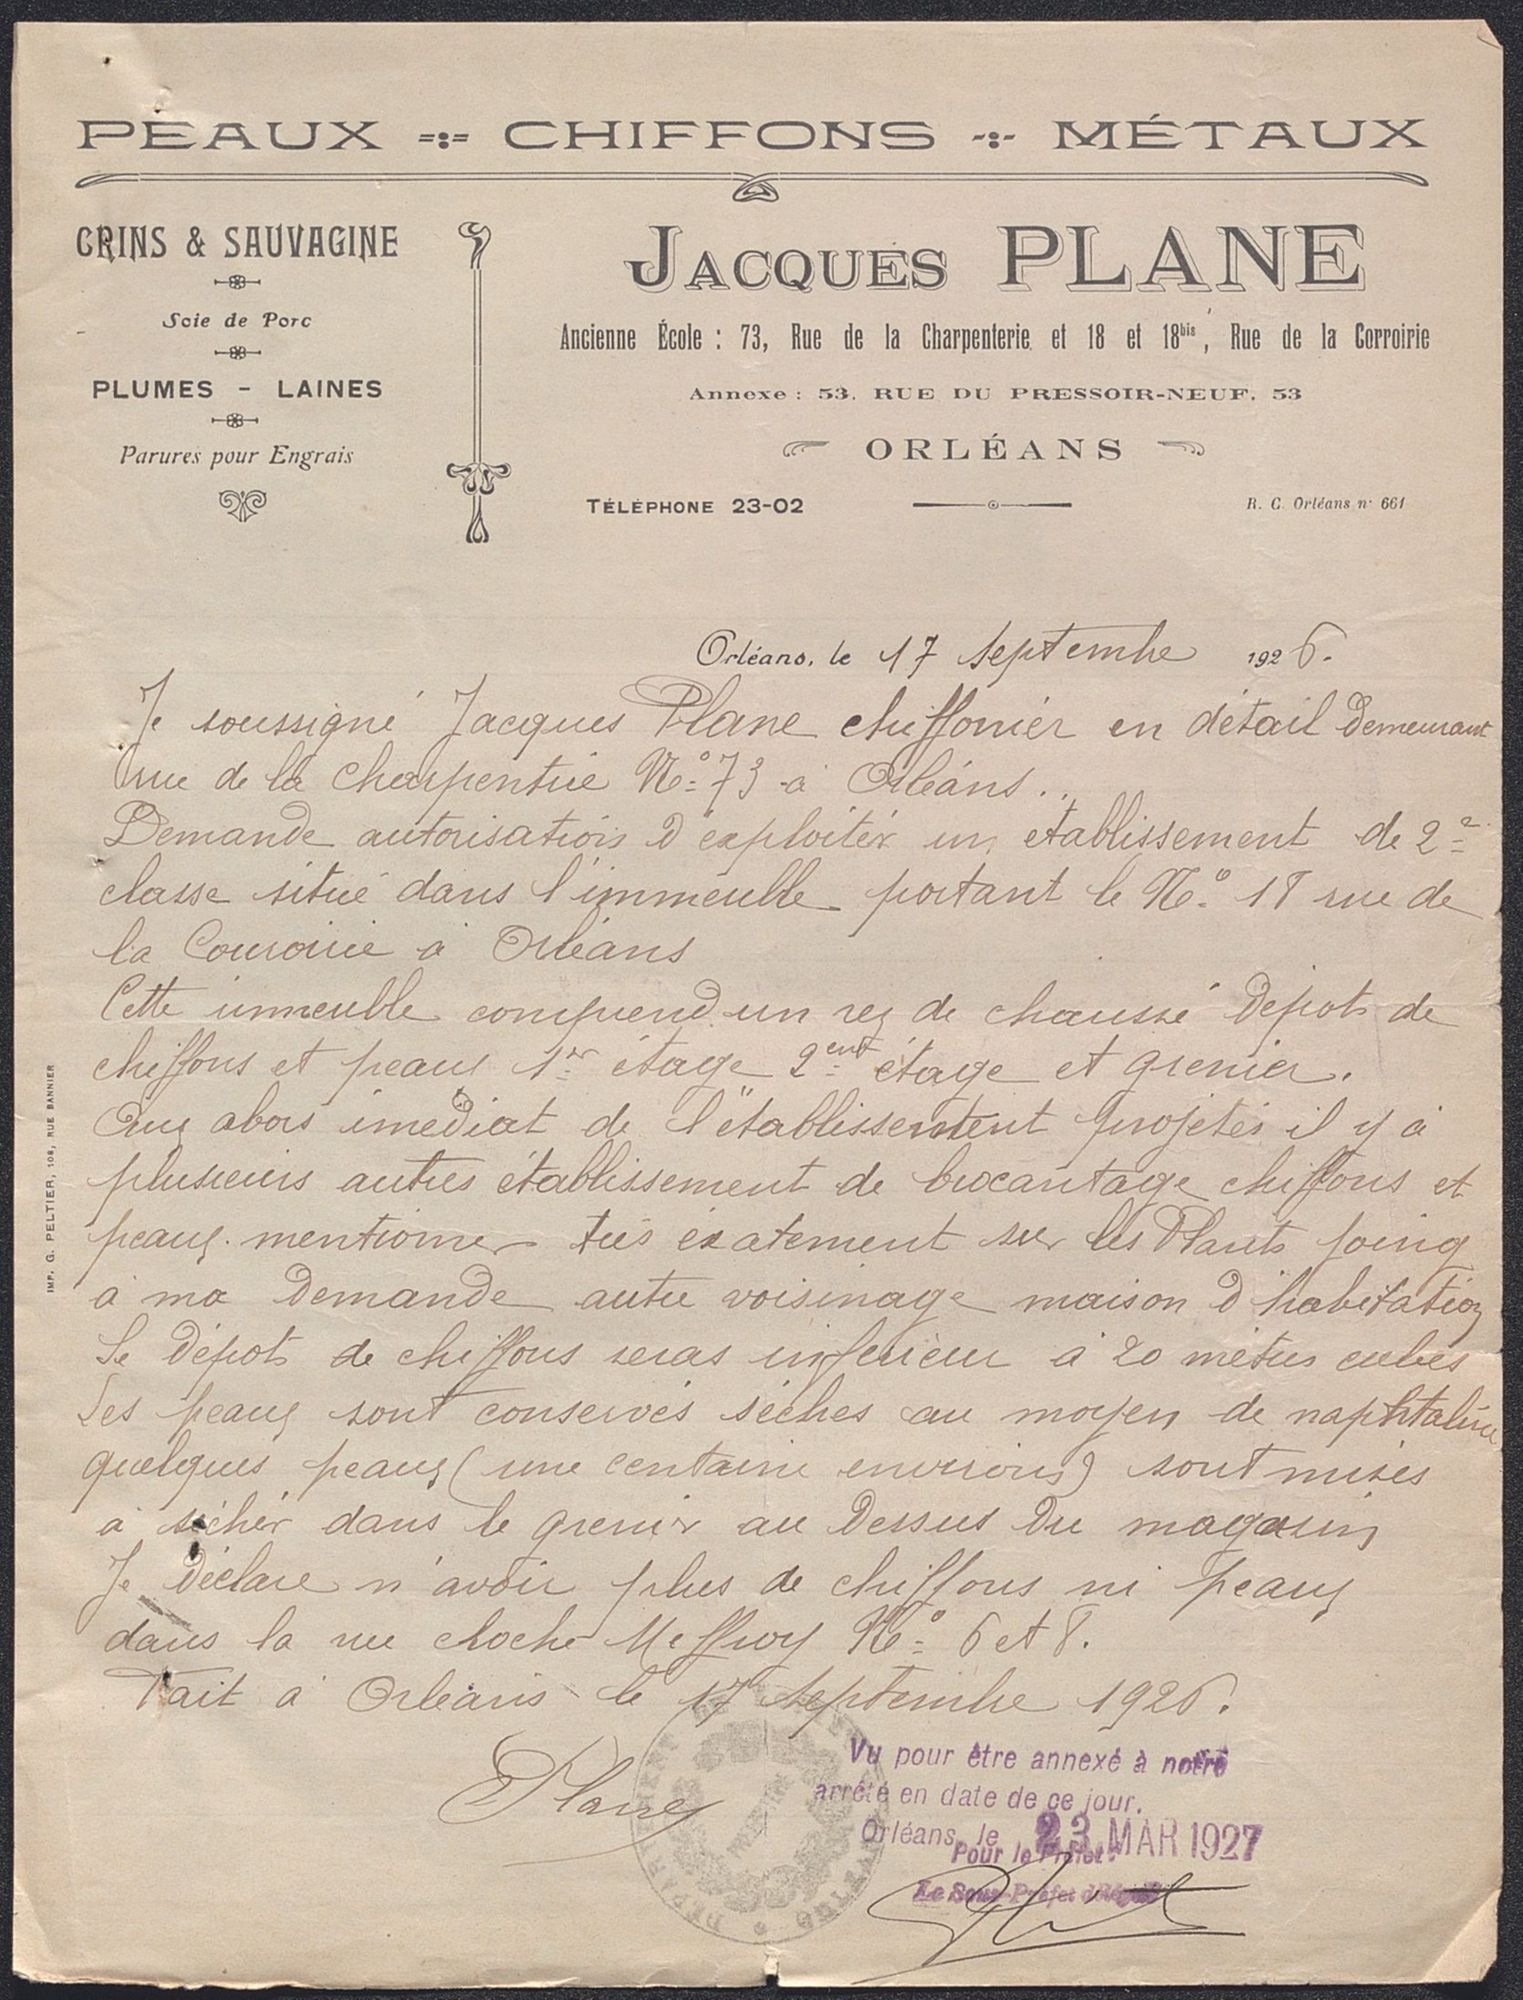 PEAUX CHIFFONS MÉTAUX
CRINS & SAUVAGINE
Soie de Porc
PLUMES - LAINES
Parures pour Engrais
JACQUES PLANE
Ancienne École : 73, Rue de la Charpenterie et 18 et 18bis, Rue de la Corroirie
Annexe : 53, RUE DU PRESSOIR-NEUF, 53
ORLÉANS
TÉLÉPHONE 23-02
R. C. Orléans n° 661
Orléans, le 17 septembre 1926.
Je soussigné Jacques Plane chiffonier en détail demeurant
rue de la Charpentrie No 73 à Orléans..
Demande autorisation d'exploiter un etablissement de 2e
classe situé dans l'immeuble portant le No 18 rue de
la Couroirie a Orléans
Cette immeuble comprend un rez de chaussé dépot de
chiffons et peaux 1er étage 2ent étage et grenier.
Aux abors imediat de l'établissement projetés il y à
plusieurs autres établissement de brocantage chiffons et
peaux mentionner trés éxatement sur les Plants joing
à ma demande autre voisinage maison d'habitation
Le dépot de chiffons seras inferieur à 20 métres cubes
Les peaux sont conservés séches au moyen de naphtaline
quelques peaux (une centaine environs) sont mises
à sécher dans le grenier au dessus du magasin
Je déclare n'avoir plus de chiffons ni peaux
dans la rue cloche Meffroy No 6 et 8.
Fait à Orléans le 17 septembre 1926.
Plane
Vu pour être annexé à notre
arrêté en date de ce jour.
Orléans, le 23 MAR 1927
Pour le Préfet :
Le Sous-Préfet
IMP. G. PELTIER, 108, RUE BANNIER